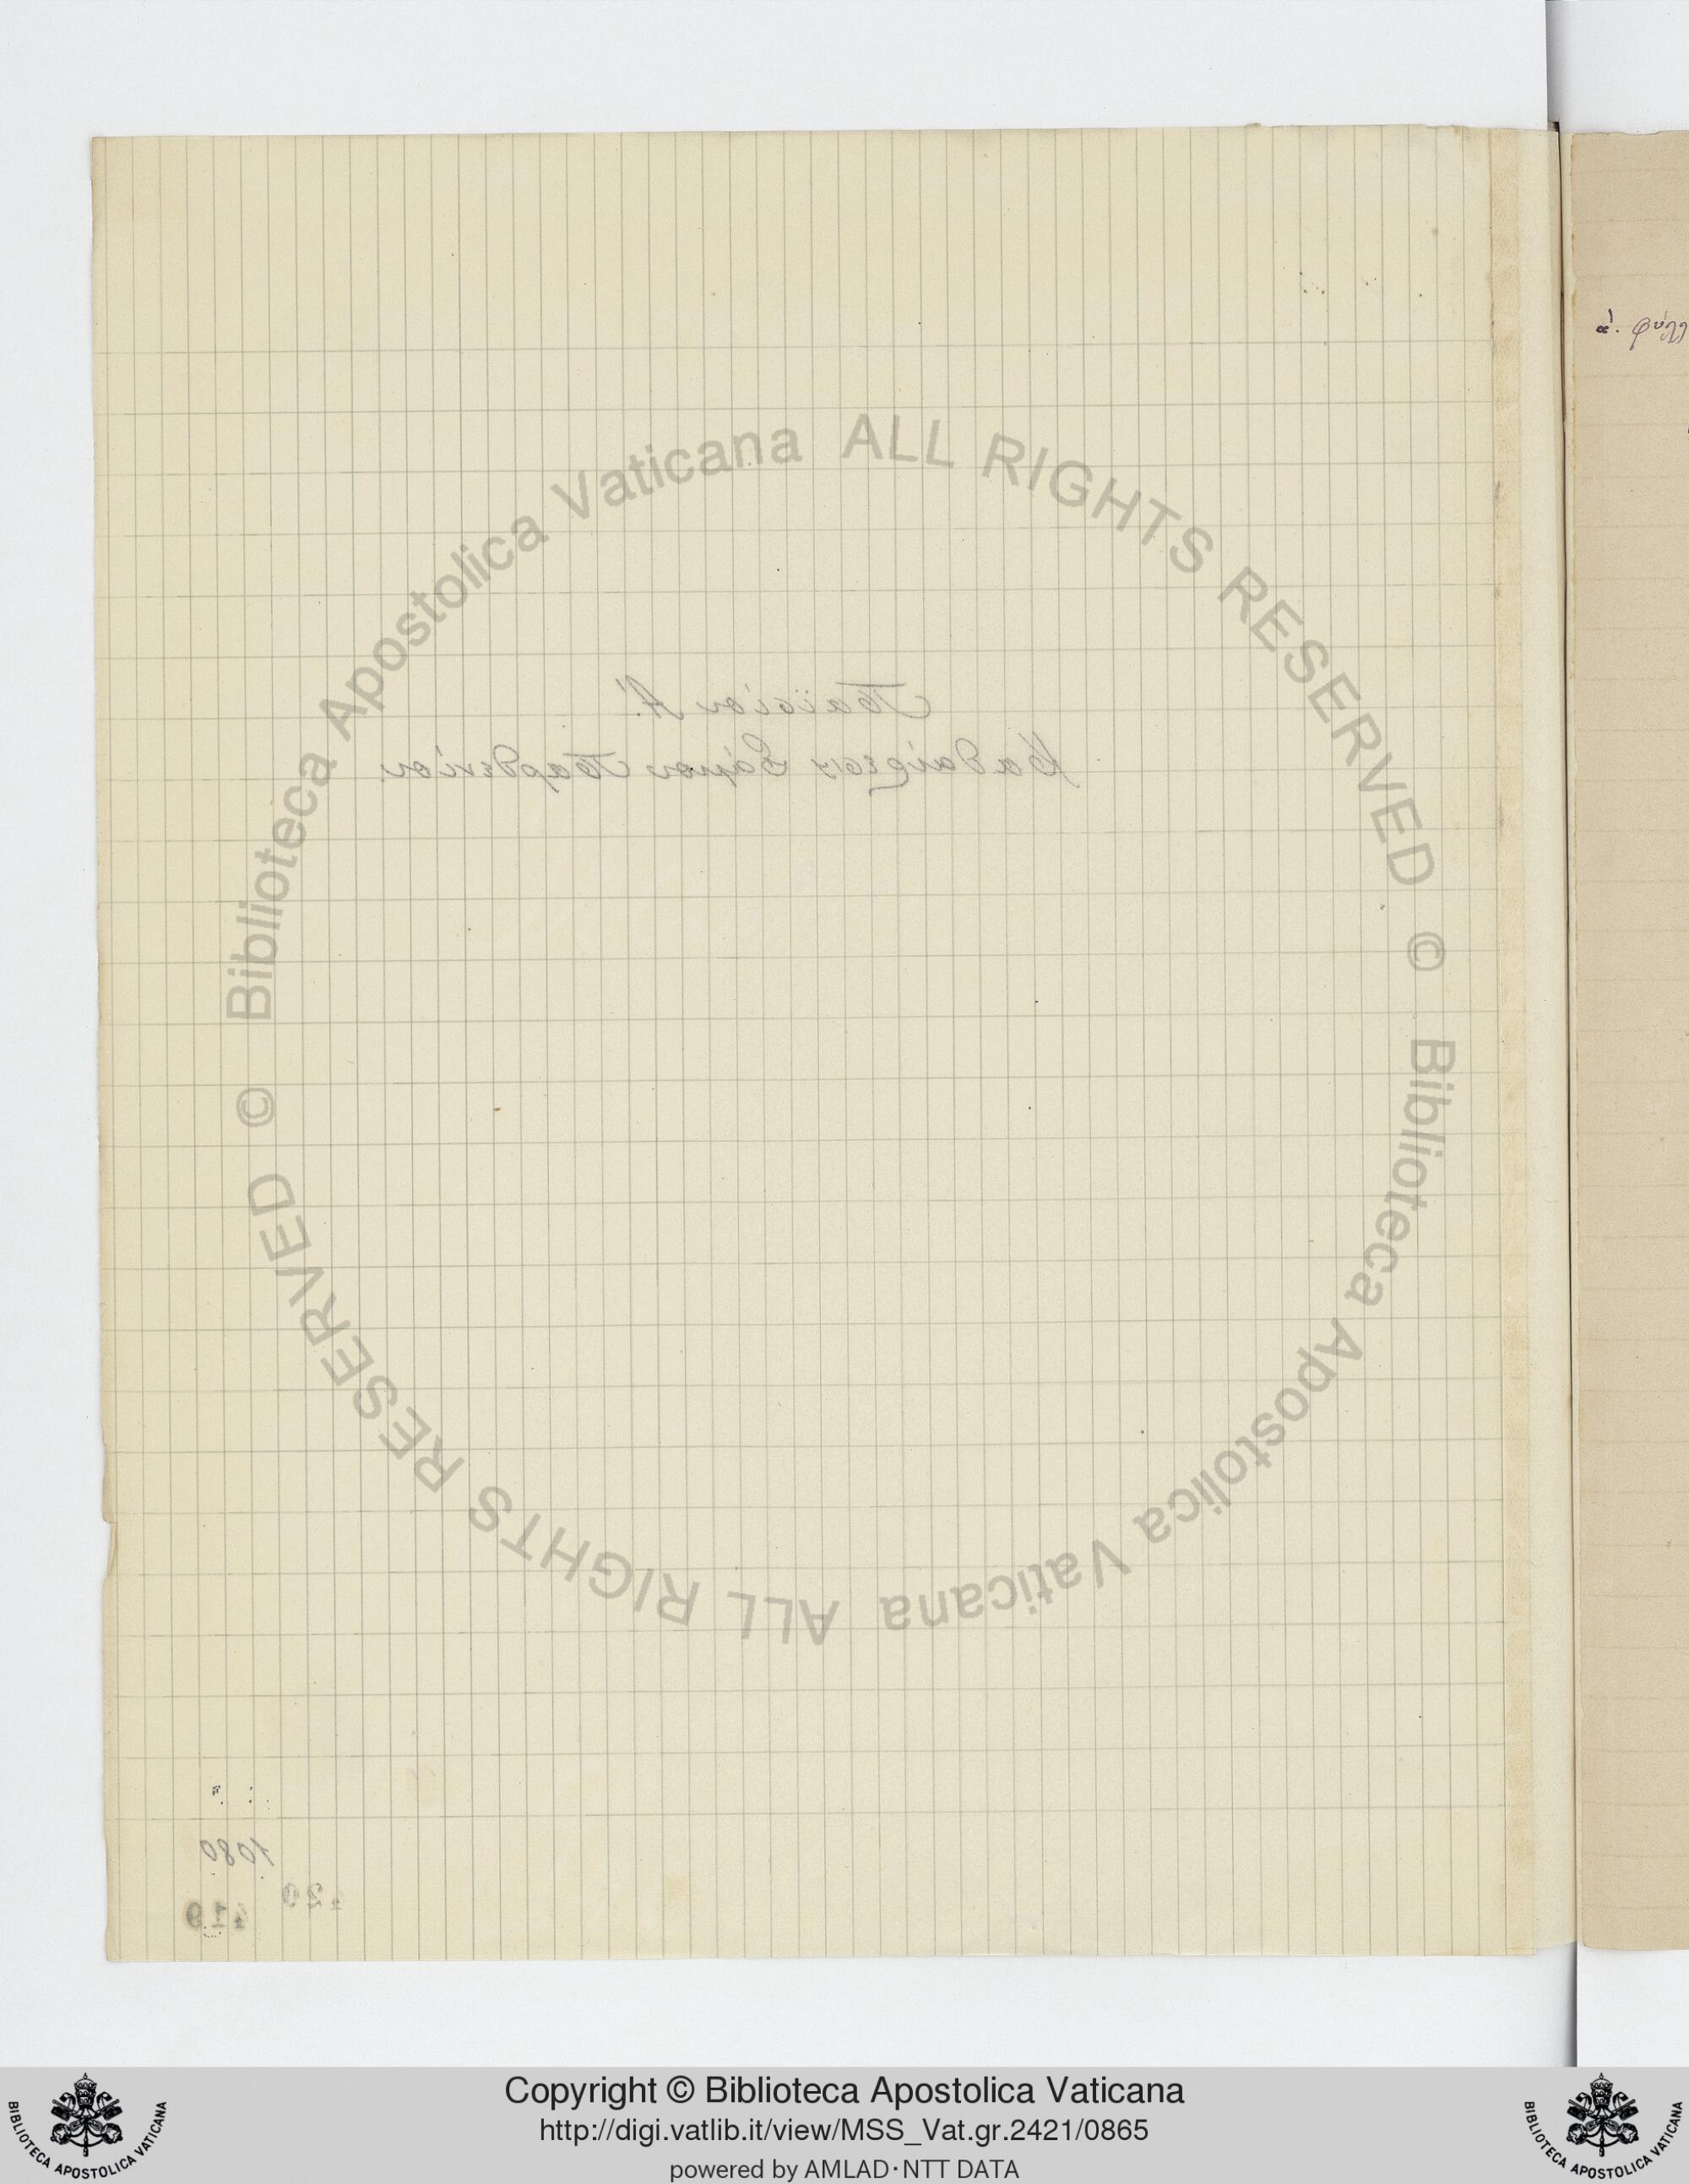 ά. φύλλ
Παϊσίου Α΄.
Καθαίρεσις Σάμου Παρθενίου.
1080
429
419
© Biblioteca Apostolica Vaticana ALL RIGHTS RESERVED
© Biblioteca Apostolica Vaticana ALL RIGHTS RESERVED
Copyright © Biblioteca Apostolica Vaticana
http://digi.vatlib.it/view/MSS_Vat.gr.2421/0865
powered by AMLAD·NTT DATA
BIBLIOTECA APOSTOLICA VATICANA
BIBLIOTECA APOSTOLICA VATICANA